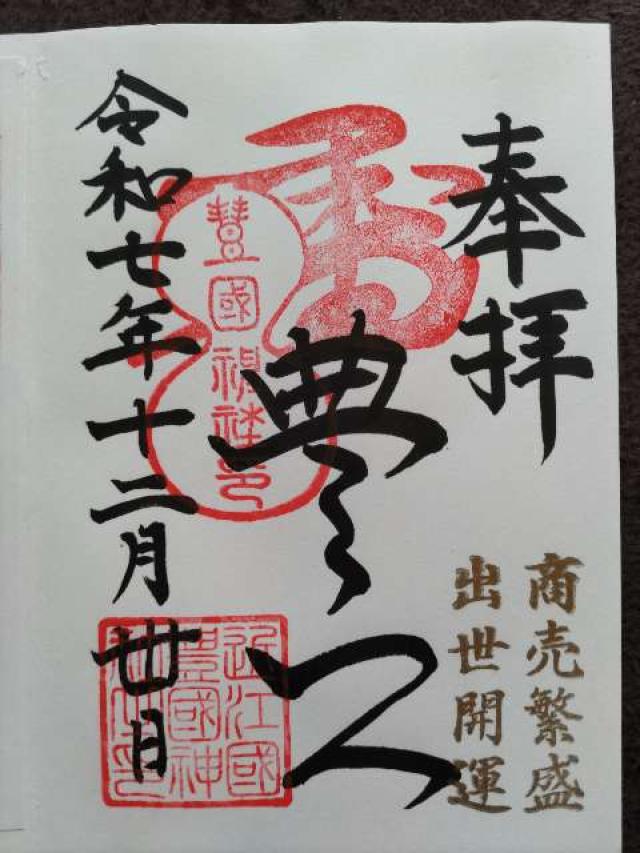 奉拝
商売繁盛
出世開運
豊公
豊國神社印
令和七年十二月廿日
近江國
豊國神
社之印